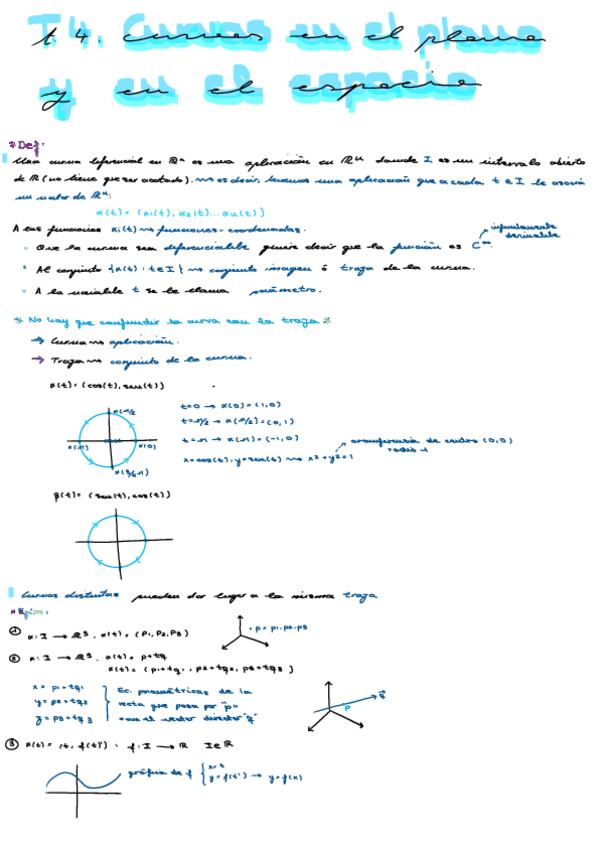 T4. Curvas en el plano
y en el espacio
* Def:
Una curva diferencial en ℝⁿ es una aplicación en ℝⁿ donde I es un intervalo abierto
de ℝ (no tiene que ser acotado). es decir, tenemos una aplicación que a cada t∈I le asocia
un valor de ℝⁿ:
α(t) = (α₁(t), α₂(t)... αₙ(t))
A las funciones αᵢ(t) funciones-coordenadas.
infinitamente
derivable
Que la curva sea diferenciable quiere decir que la función es C∞.
Al conjunto {α(t) : t∈I} conjunto imagen ó traza de la curva.
A la variable t se le llama parámetro.
* No hay que confundir la curva con la traza *
→ Curva aplicación.
→ Traza conjunto de la curva.
α(t) = (cos(t), sen(t))
α(π/2
α(π)
α(0)
t=0 → α(0) = (1,0)
t=π/2 → α(π/2) = (0,1)
t=π → α(π) = (-1,0)
x=cos(t), y=sen(t) x²+y²=1
circunferencia de centro (0,0)
radio 1
β(t) = (sen(t), cos(t))
Curvas distintas pueden dar lugar a la misma traza
* Ejm:
① α: I → ℝ³, α(t) = (p₁, p₂, p₃)
p = p₁, p₂, p₃
② α: I → ℝ³, α(t) = p+tq
α(t) = (p₁+tq₁, p₂+tq₂, p₃+tq₃)
x = p₁+tq₁
y = p₂+tq₂
z = p₃+tq₃
Ec. paramétricas de la
recta que pasa por "p"
con el vector director "q"
p
q
③ α(t) = (t, f(t)), f: I → ℝ I∈ℝ
gráfica de f { x=t
y=f(t) → y=f(x)